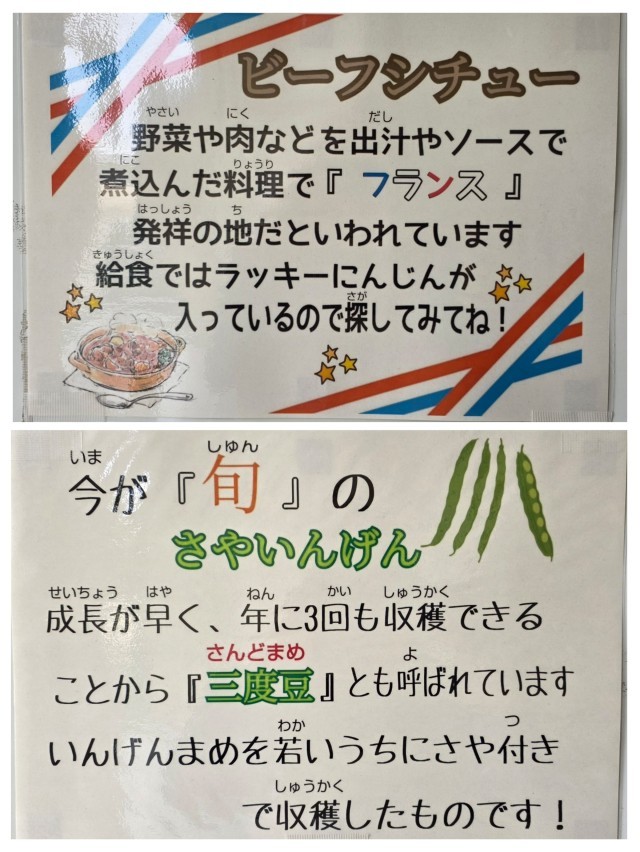 ビーフシチュー
やさい にく だし
野菜や肉などを出汁やソースで
にこ りょうり
煮込んだ料理で『 フランス 』
はっしょう ち
発祥の地だといわれています
きゅうしょく
給食ではラッキーにんじんが
さが
入っているので探してみてね！
いま しゅん
今が『旬』の
さやいんげん
せいちょう はや ねん かい しゅうかく
成長が早く、年に3回も収穫できる
さんどまめ よ
ことから『三度豆』とも呼ばれています
わか つ
いんげんまめを若いうちにさや付き
しゅうかく
で収穫したものです！